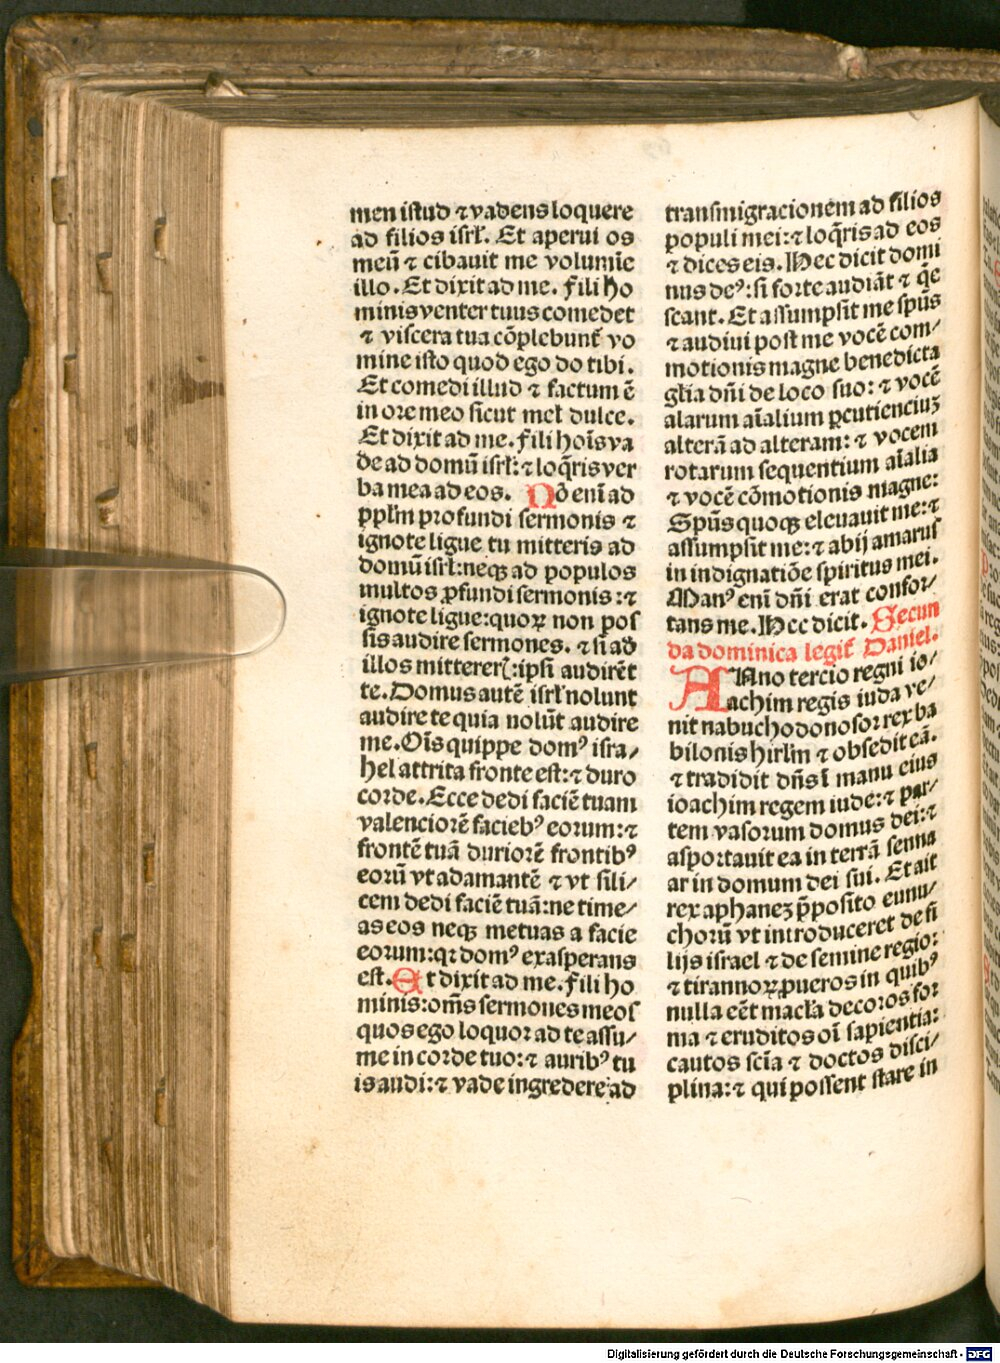 men istud ⁊ vadens loquere
ad filios isrł. Et aperui os
meū ⁊ cibauit me volumīe
illo. Et dixit ad me. fili ho
minis venter tuus comedet
⁊ viscera tua cōplebunt᷒ vo
mine isto quod ego do tibi.
Et comedi illud ⁊ factum ē
in ore meo sicut mel dulce.
Et dixit ad me. fili hoīs va
de ad domū isrł: ⁊ loq̄ris ver
ba mea ad eos. Nō enī ad
pplm̄ profundi sermonis ⁊
ignote ligue tu mitteris ad
domū isrł: neqꝫ ad populos
multos ꝓfundi sermonis: ⁊
ignote ligue: quoꝝ non pos
sis audire sermones. ⁊ si ad
illos mitterer᷒: ipsi audirēt
te. Domus autē isrł nolunt
audire te quia nolūt audire
me. Oīs quippe domꝰ isra/
hel attrita fronte est: ⁊ duro
corde. Ecce dedi faciē tuam
valenciorē faciebꝰ eorum: ⁊
frontē tuā duriorē frontibꝰ
eorū vt adamantē ⁊ vt sili/
cem dedi faciē tuā: ne time/
as eos neqꝫ metuas a facie
eorum: qꝛ domꝰ exasperans
est. Et dixit ad me. fili ho
minis: om̄s sermones meos
quos ego loquor ad te assu/
me in corde tuo: ⁊ auribꝰ tu
is audi: ⁊ vade ingredere ad
transmigracionem ad filios
populi mei: ⁊ loq̄ris ad eos
⁊ dices eis. Hec dicit domi
nus deꝰ: si forte audiāt ⁊ q̄e
scant. Et assumpsit me spūs
⁊ audiui post me vocē com/
motionis magne benedicta
gl̄ia dn̄i de loco suo: ⁊ vocē
alarum aīalium ꝑcutienciuꝫ
alterā ad alteram: ⁊ vocem
rotarum sequentium aīalia
⁊ vocē cōmotionis magne:
Spūs quoqꝫ eleuauit me: ⁊
assumpsit me: ⁊ abij amarus
in indignatiōe spiritus mei.
Manꝰ enī dn̄i erat confor/
tans me. Hec dicit. Secun
da dominica legit᷒ Daniel.
ANno tercio regni io/
achim regis iuda ve/
nit nabuchodonosor rex ba
bilonis hirlm̄ ⁊ obsedit eā.
⁊ tradidit dn̄s ī manu eius
ioachim regem iude: ⁊ par/
tem vasorum domus dei: ⁊
asportauit ea in terrā senna
ar in domum dei sui. Et ait
rex aphanez p̄posito eunu/
chorū vt introduceret de fi
lijs israel ⁊ de semine regio:
⁊ tirannoꝝ pueros in quibꝰ
nulla eēt macl̄a decoros for
ma ⁊ eruditos oī sapientia:
cautos scīa ⁊ doctos disci/
plina: ⁊ qui possent stare in
Digitalisierung gefördert durch die Deutsche Forschungsgemeinschaft - DFG